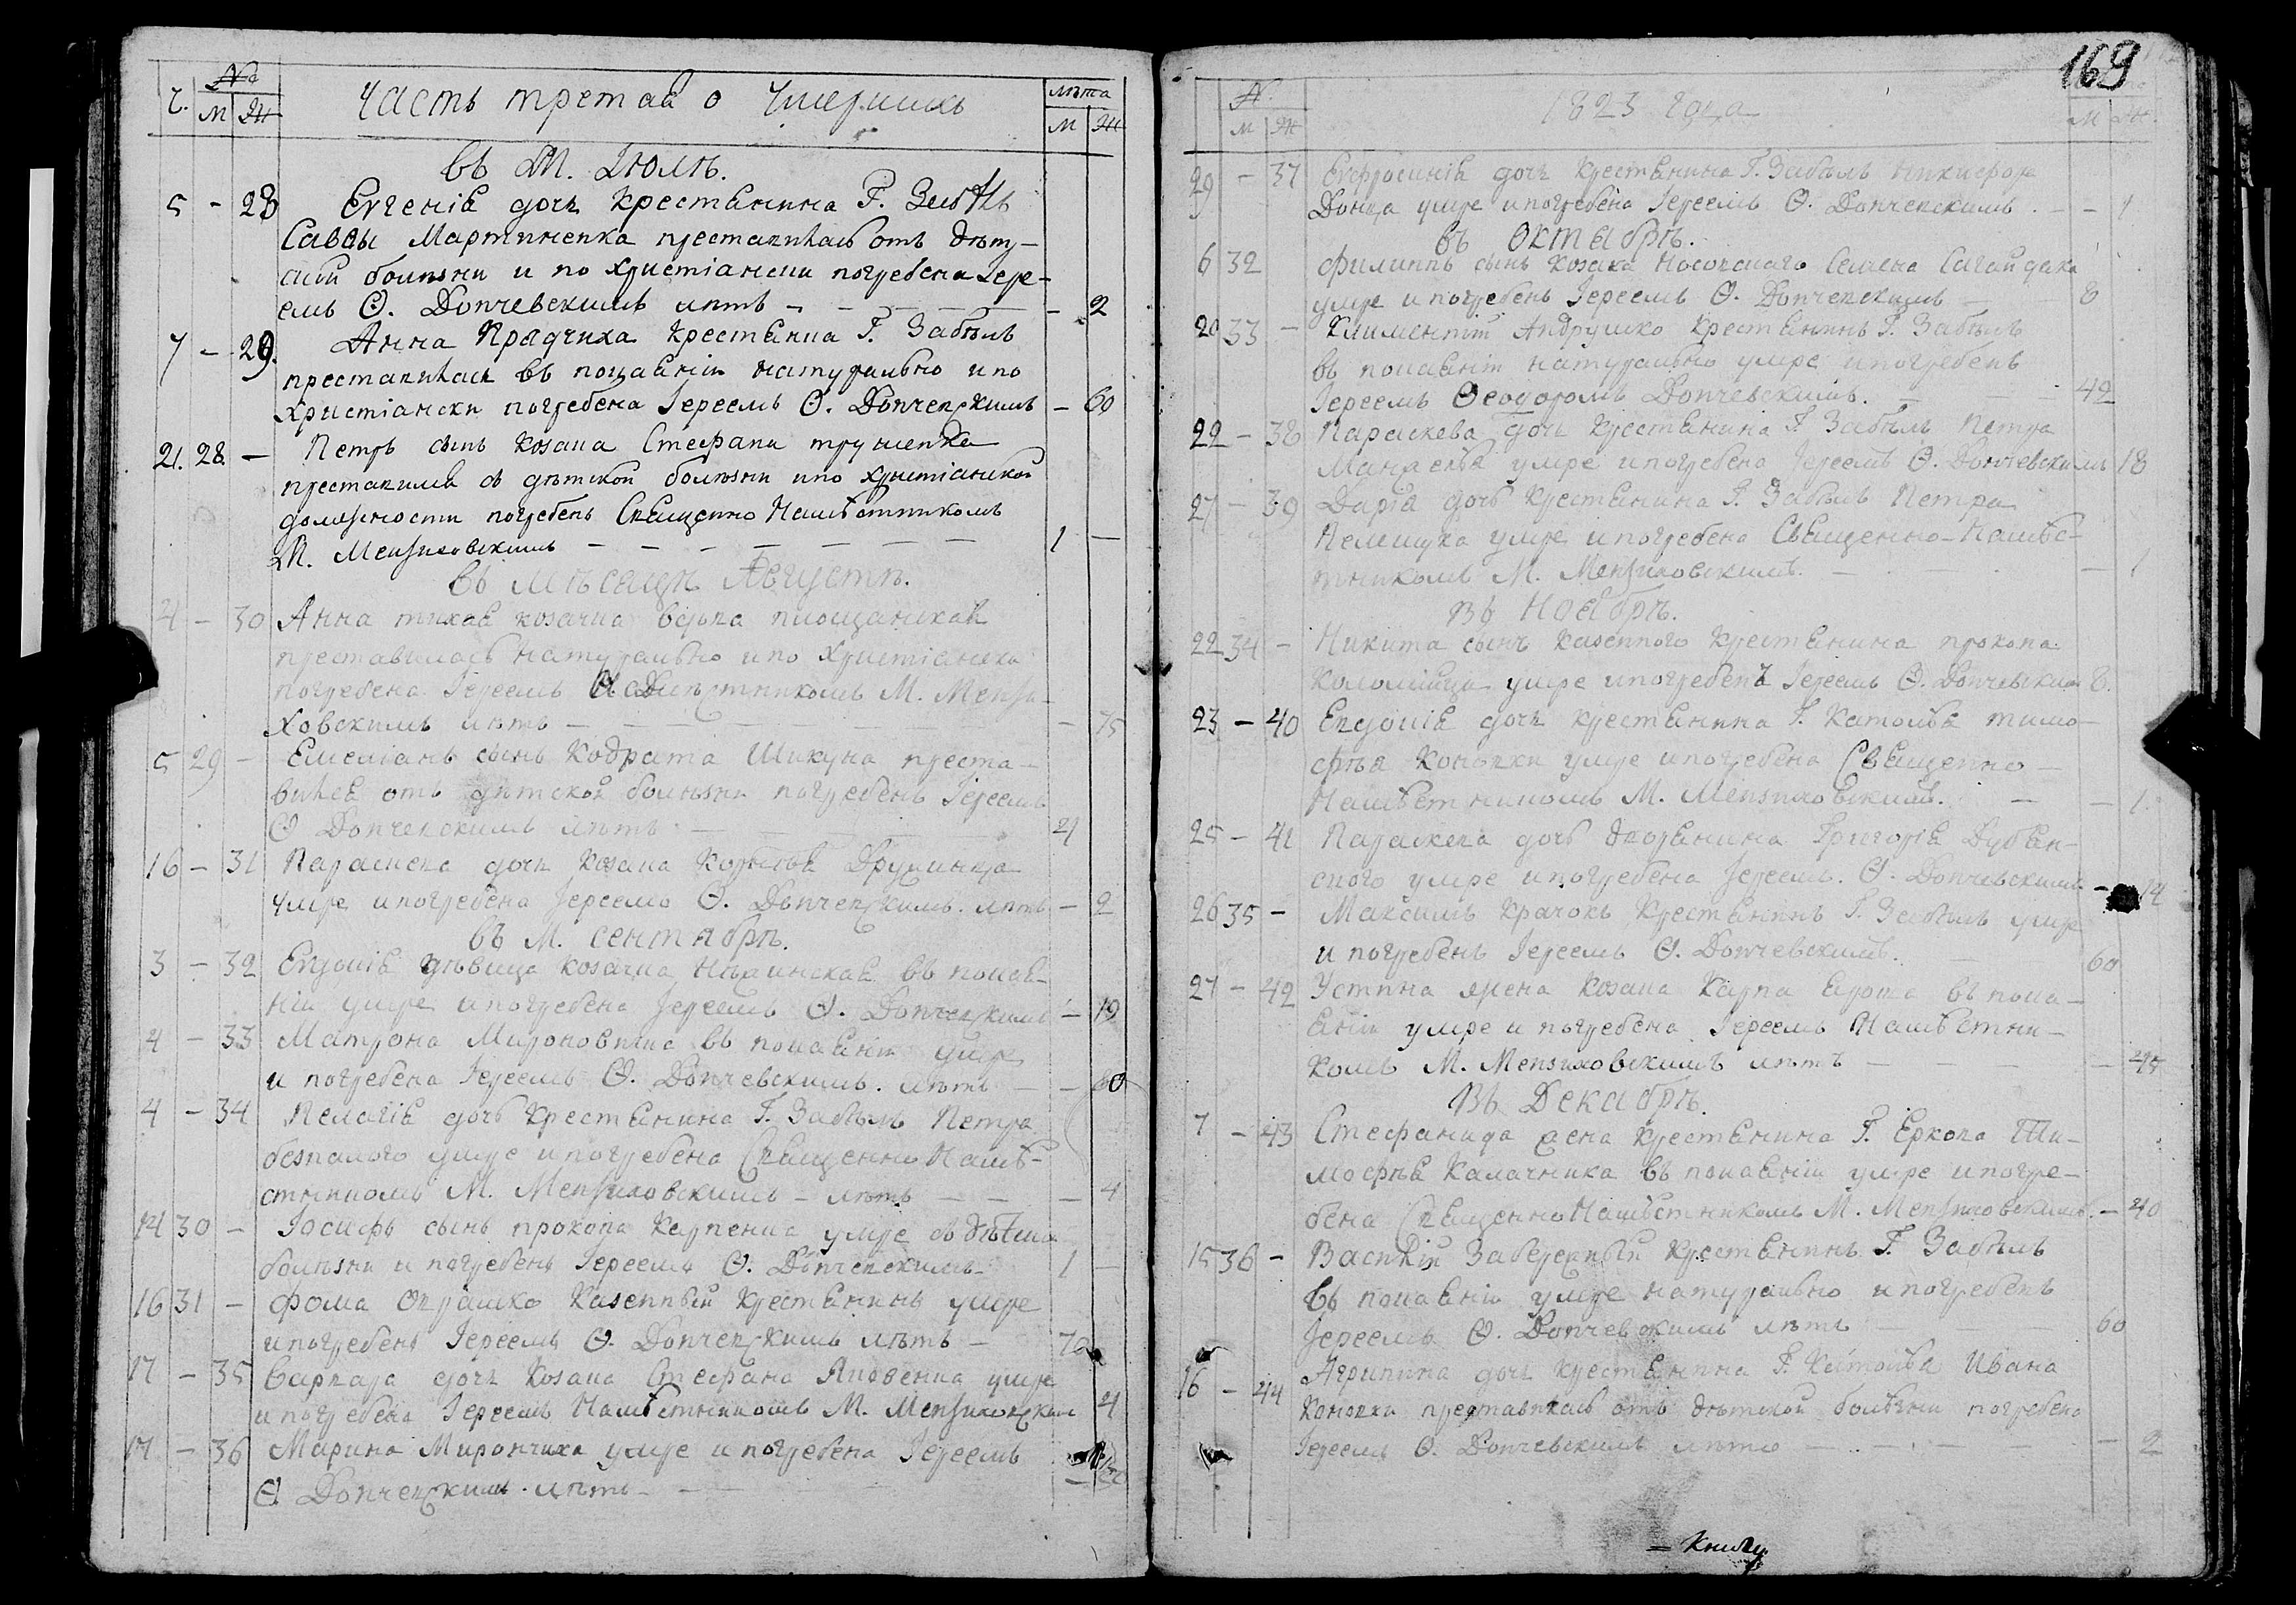 Ч. № М Ж Часть третая о Умершихъ лѣта М Ж
въ М. Іюлѣ.
5 - 28 Евгеніѧ дочь крестьѧнина Г.
Саввы Мартиненка преставиласъ отъ дѣт-
ской болѣзни и по христіански погребена Іере-
емъ Ѳ. Dончевскимъ лѣтъ - - 2
7 - 29. Анна Прядчиха крестьѧнка Г. Забѣлъ
преставилась въ покаѧніи натурально и по
христіански погребена Іереемъ Ѳ. Dончевскимъ - 60
21. 28. - Петръ сынъ козака Стефана
преставилсѧ ѿ дѣтской болѣзни и по христіанской
должности погребенъ Свѧщенно Намѣстникомъ
М. Мензиховскимъ - - - - - - - 1 -
въ мѣсецѣ Августѣ.
4 - 30 Анна тихаѧ козачка вдова
преставиласъ натурально и по христіански
погребена Іереемъ М. Мензи-
ховскимъ лѣтъ - - 75
5 29 - Емеліанъ сынъ Кодрата Шикуна преста-
вилсѧ отъ дѣтской болѣзни погребенъ Іереемъ
Ѳ Dончевскимъ лѣтъ - 4
16 - 31 Параскева дочь козака
умре и погребена Іереемъ Ѳ. Dончевскимъ. лѣтъ - 2
въ М. сентябрѣ.
3 - 32 Евдокіѧ дѣвица козачка Нѣжинскаѧ въ покаѧ-
ніи умре и погребена Іереемъ Ѳ. Dончевскимъ - 19
4 - 33 Матрона въ покаѧніи умре
и погребена Іереемъ Ѳ. Dончевскимъ. лѣтъ - - 60
4 - 34 Пелагіѧ дочъ крестьѧнина Г. Забѣлъ Петра
безпалого умре и погребена Свѧщенно Намѣ-
стникомъ М. Мензиховскимъ - лѣтъ - - - 4
14 30 - Іосифъ сынъ прокопа Карпенка умре ѿ
болѣзни и погребенъ Іереемъ Ѳ. Dончевскимъ 1 -
16 31 - Фома Казенный крестьѧнинъ умре
и погребенъ Іереемъ Ѳ. Dончевскимъ лѣтъ -
17 - 35 Варвара дочь козака Стефана Яковенка умре
и погребена Іереемъ Намѣстникомъ М. Мензиховским 4
17 - 36 Марина Мирончиха умре и погребена Іереемъ
Ѳ. Dончевскимъ. лѣтъ -
169
№ М Ж 1823 года М Ж
29 - 37 Евфросиніѧ дочь крестьѧнина Г. Забѣлъ Никифора
Донца умре и погребена Іереемъ Ѳ. Dончевскимъ. - - 1
въ Октѧбрѣ.
6 32 Филиппъ сынъ козака Носовскаго Семена Сагайдака
умре и погребенъ Іереемъ Ѳ. Dончевскимъ - 8
20 33 - Климентій Андрушко крестьѧнинъ Г. Забѣлъ
въ покаѧніи натурально умре и погребенъ
Іереемъ Ѳеодоромъ Dончевскимъ. - 42
22 - 38 Параскева дочь крестьѧнина Г. Забѣлъ Петра
умре и погребена Іереемъ Ѳ. Dончевскимъ 18
27 - 39 Dаріѧ дочъ крестьѧнина Г. Забѣлъ Петра
умре и погребена Свѧщенно-Намѣс-
тникомъ М. Мензиховскимъ. - - 1
въ Ноѧбрѣ.
22 34 - Никита сынъ казенного крестьѧнина прокопа
Коломійца умре и погребенъ Іереемъ Ѳ. Dончевским 8.
23 - 40 Евдокіѧ дочь крестьѧнина Г. Катомѣѧ тимо-
фѣя Коновки умре и погребена Свѧщенно-
Намѣстникомъ М. Мензиховскимъ. - - 1.
25 - 41 Параскева дочъ дворѧнина Григоріѧ Дубѧн-
ского умре и погребена Іереемъ. Ѳ. Dончевскимъ - 14
26 35 - Максимъ Крачокъ крестьѧнинъ Г. Забѣлъ умре
и погребенъ Іереемъ Ѳ. Dончевскимъ. - 60
27 - 42 Устина жена козака Карпа въ пока-
ѧніи умре и погребена Іереемъ Намѣстни-
комъ М. Мензиховскимъ лѣтъ - - - - 45
Въ Dекабрѣ.
7 - 43 Стефанида жена крестьѧнина Г. Еркова Ти-
мофѣѧ Калачника въ покаѧніи умре и погре-
бена Свѧщенно Намѣстникомъ М. Мензиховскимъ. - 40
15 36 - Василій Забережный крестьѧнинъ Г. Забѣлъ
въ покаѧніи умре натурально и погребенъ
Іереемъ Ѳ. Dончевскимъ лѣтъ - 60
16 - 44 Агрипина дочь крестьѧнина Г. Катомѣѧ Ивана
Коновки преставиласъ отъ дѣтской болѣзни погребена
Іереемъ Ѳ. Dончевскимъ лѣтъ - - - - 2
- Книгу